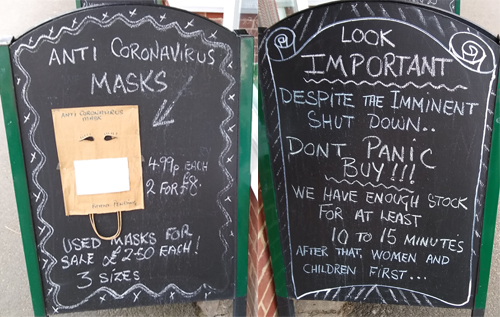 ANTI CORONAVIRUS
MASKS
ANTI CORONAVIRUS
MASK
4.99p EACH
2 FOR £8.
USED MASKS FOR
SALE £2.50 EACH!
3 SIZES
LOOK
IMPORTANT
DESPITE THE IMMINENT
SHUT DOWN..
DONT PANIC
BUY!!!
WE HAVE ENOUGH STOCK
FOR AT LEAST
10 TO 15 MINUTES
AFTER THAT, WOMEN AND
CHILDREN FIRST...